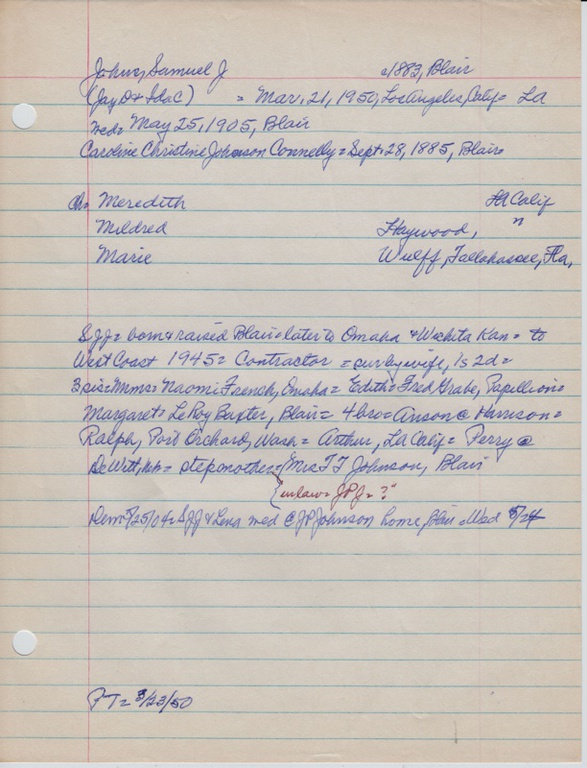 Johns, Samuel J c1883, Blair
(Jay D + Ida C) = Mar. 21, 1950, Los Angeles, Calif = LA
med = May 25, 1905, Blair
Caroline Christine Johnson Connelly = Sept. 28, 1885, Blair =
ch = Meredith LA Calif
Mildred Haywood, "
Marie Wulff, Tallahassee, Fla,
SJJ = born & raised Blair = later to Omaha & Wichita Kan = to
West Coast 1945 = Contractor = sur by wife, 1s 2d =
3 sis = Mmes = Naomi French, Omaha = Edith = Fred Grabe, Papillion =
Margaret = LeRoy Baxter, Blair = 4 bro = Anson @ Harrison =
Ralph, Port Orchard, Wash = Arthur, LA Calif = Perry @
DeWitt, = stepmother = Mrs TJ Johnson, Blair
{inlaw = JPJ = ?"
Dem 5/25/04 = SJJ & Lena med @ JP Johnson home, Blair = Wed 5/24
PT = 3/23/50